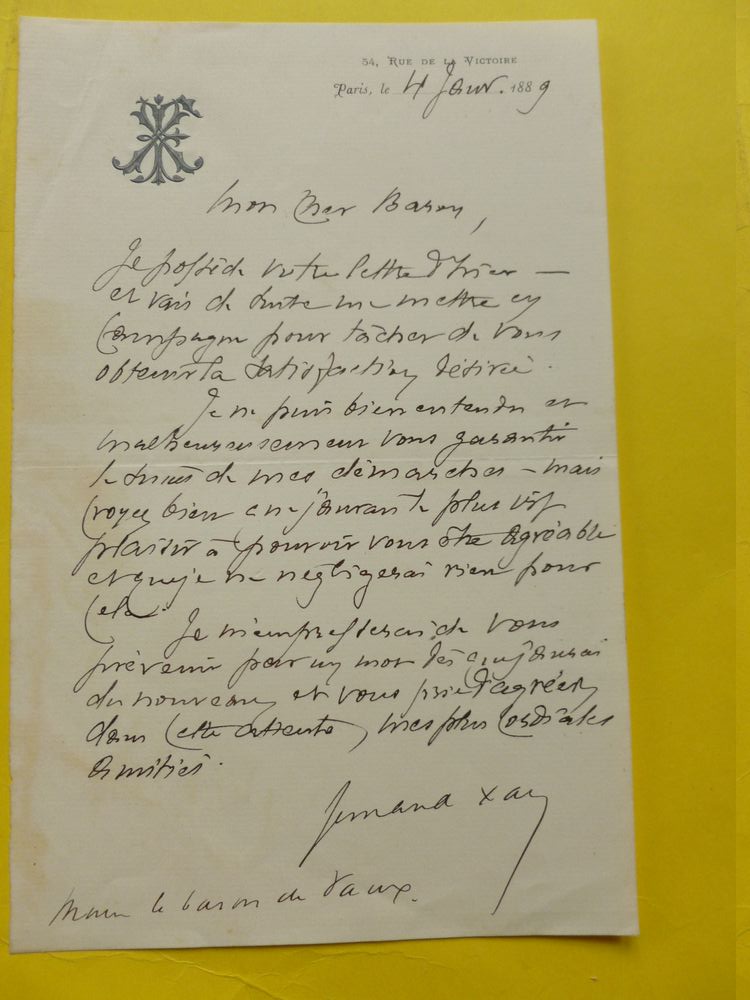 54, RUE DE LA VICTOIRE
Paris, le 4 Janv. 1889
Mon cher Baron,
Je possède votre lettre d'hier —
et vais de suite me mettre en
campagne pour tâcher de vous
obtenir la satisfaction désirée.
Je ne puis bien entendu et
malheureusement vous garantir
le succès de mes démarches – mais
croyez bien que j'aurais le plus vif
plaisir à pouvoir vous être agréable
et que je ne négligerai rien pour
cela.
Je m'empresserai de vous
prévenir par un mot dès que j'aurai
du nouveau, et vous prie d'agréer,
dans cette attente, mes plus cordiales
amitiés.
Fernand Xau
le baron de Vaux.